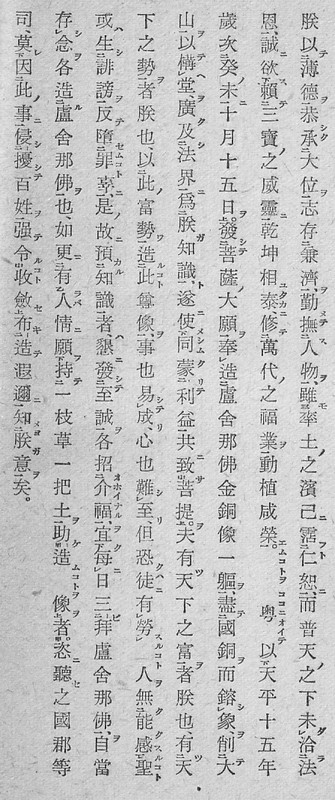 朕以薄德恭承大位、志存兼濟、勤撫人物、雖率土之濱己霑仁恕、而普天之下未洽法
恩、誠欲賴三寶之威靈、乾坤相泰、修萬代之福業、動植咸榮。　粤以天平十五年
歲次癸未十月十五日、發菩薩大願、奉造盧舍那佛金銅像一軀、盡國銅而鎔象、削大
山以構堂、廣及法界、爲朕知識、遂使同蒙利益共致菩提。夫有天下之富者朕也、有天
下之勢者朕也、以此富勢、造此尊像、事也易成、心也難至、但恐徒有勞人無能感聖
或生誹謗反墮罪辜、是故預知識者、懇發至誠各招介福、宜每日三拜盧舍那佛、自當
存念各造盧舍那佛也、如更有人情願持一枝草一把土助造　像者、恣聽之國郡等
司、莫因此事侵擾百姓强令收斂、布造遐邇、知朕意矣。